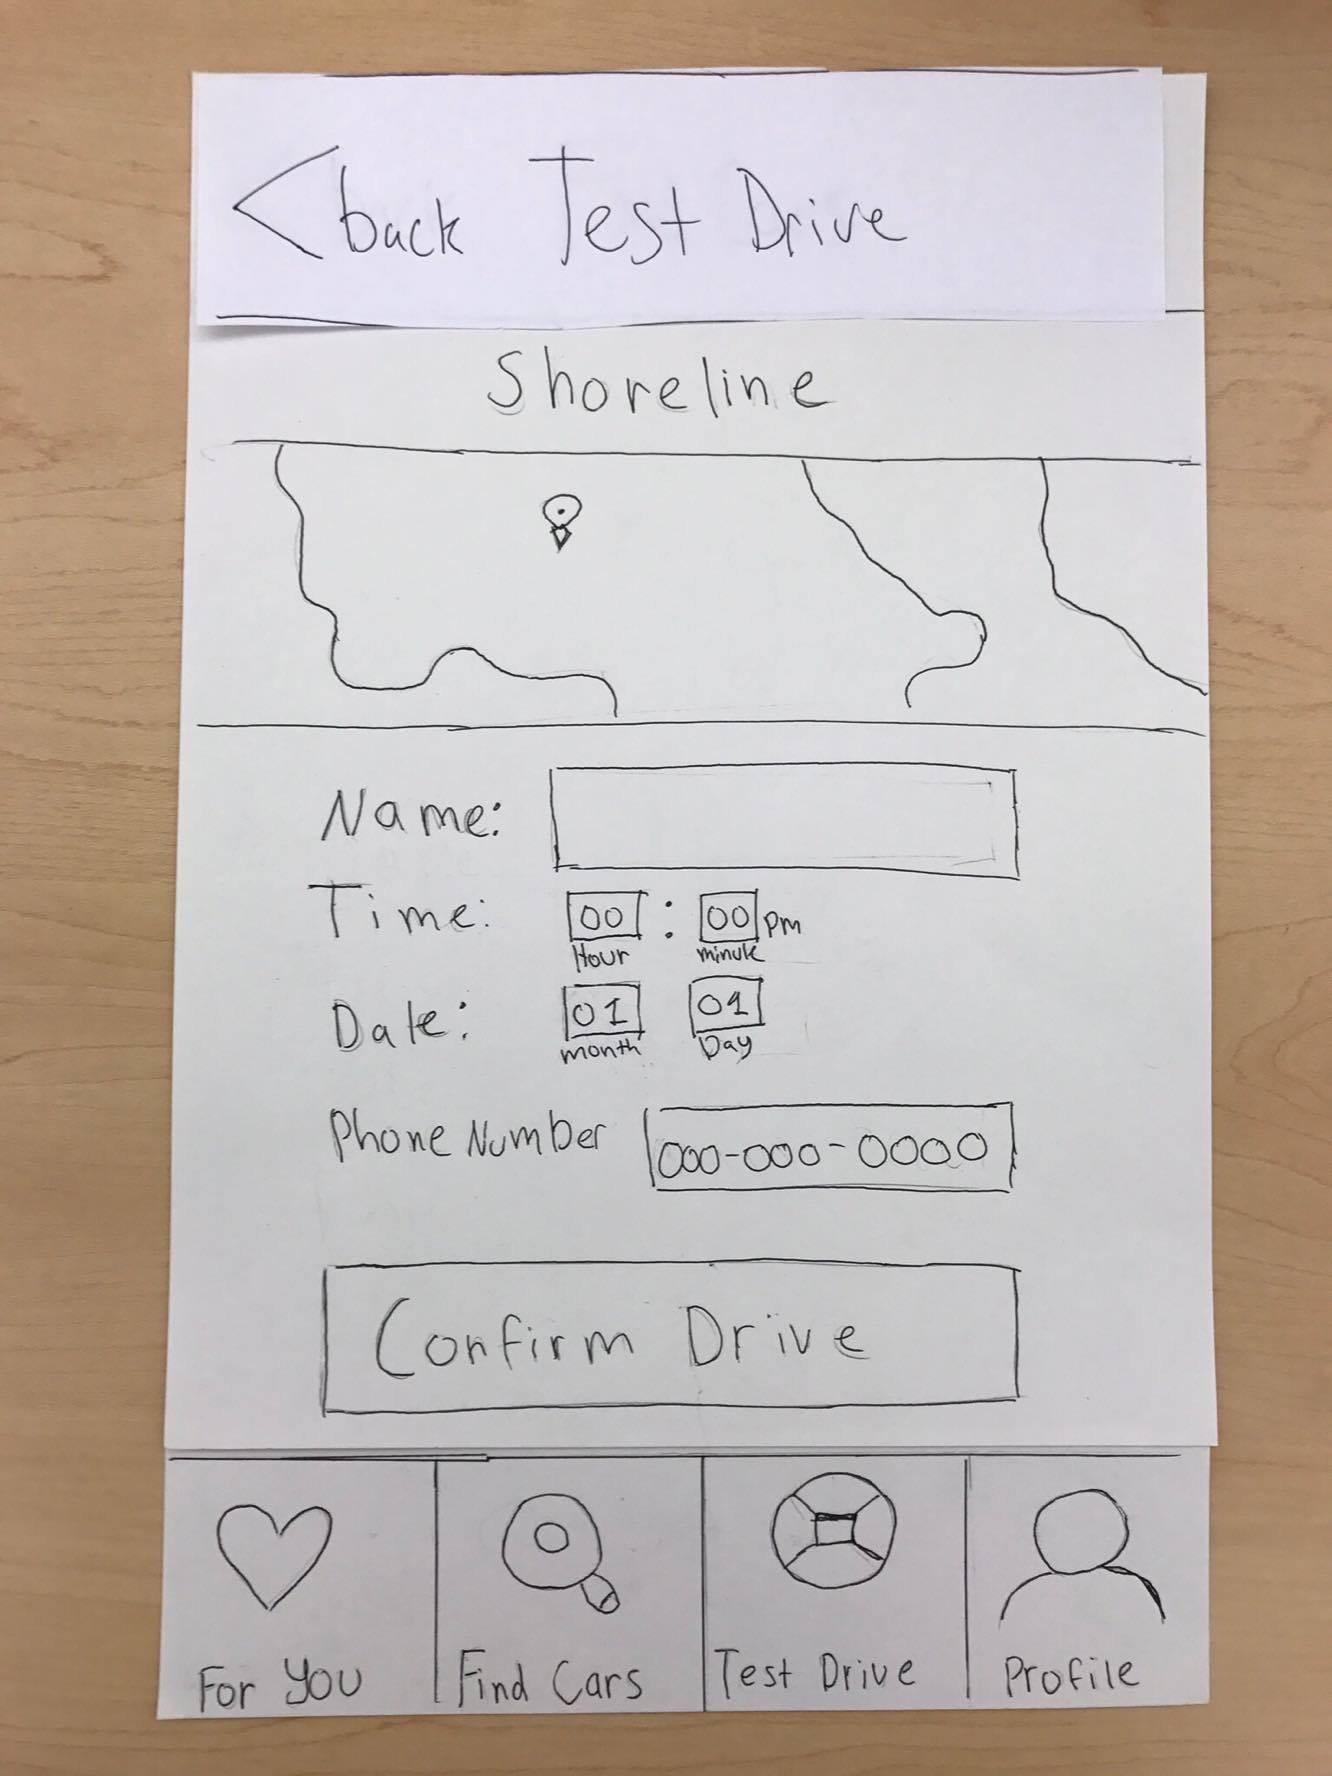 < back Test Drive
Shoreline
Name:
Time: 00 : 00 pm
Hour minute
Date: 01 01
month Day
Phone Number 000-000-0000
Confirm Drive
For You Find Cars Test Drive Profile